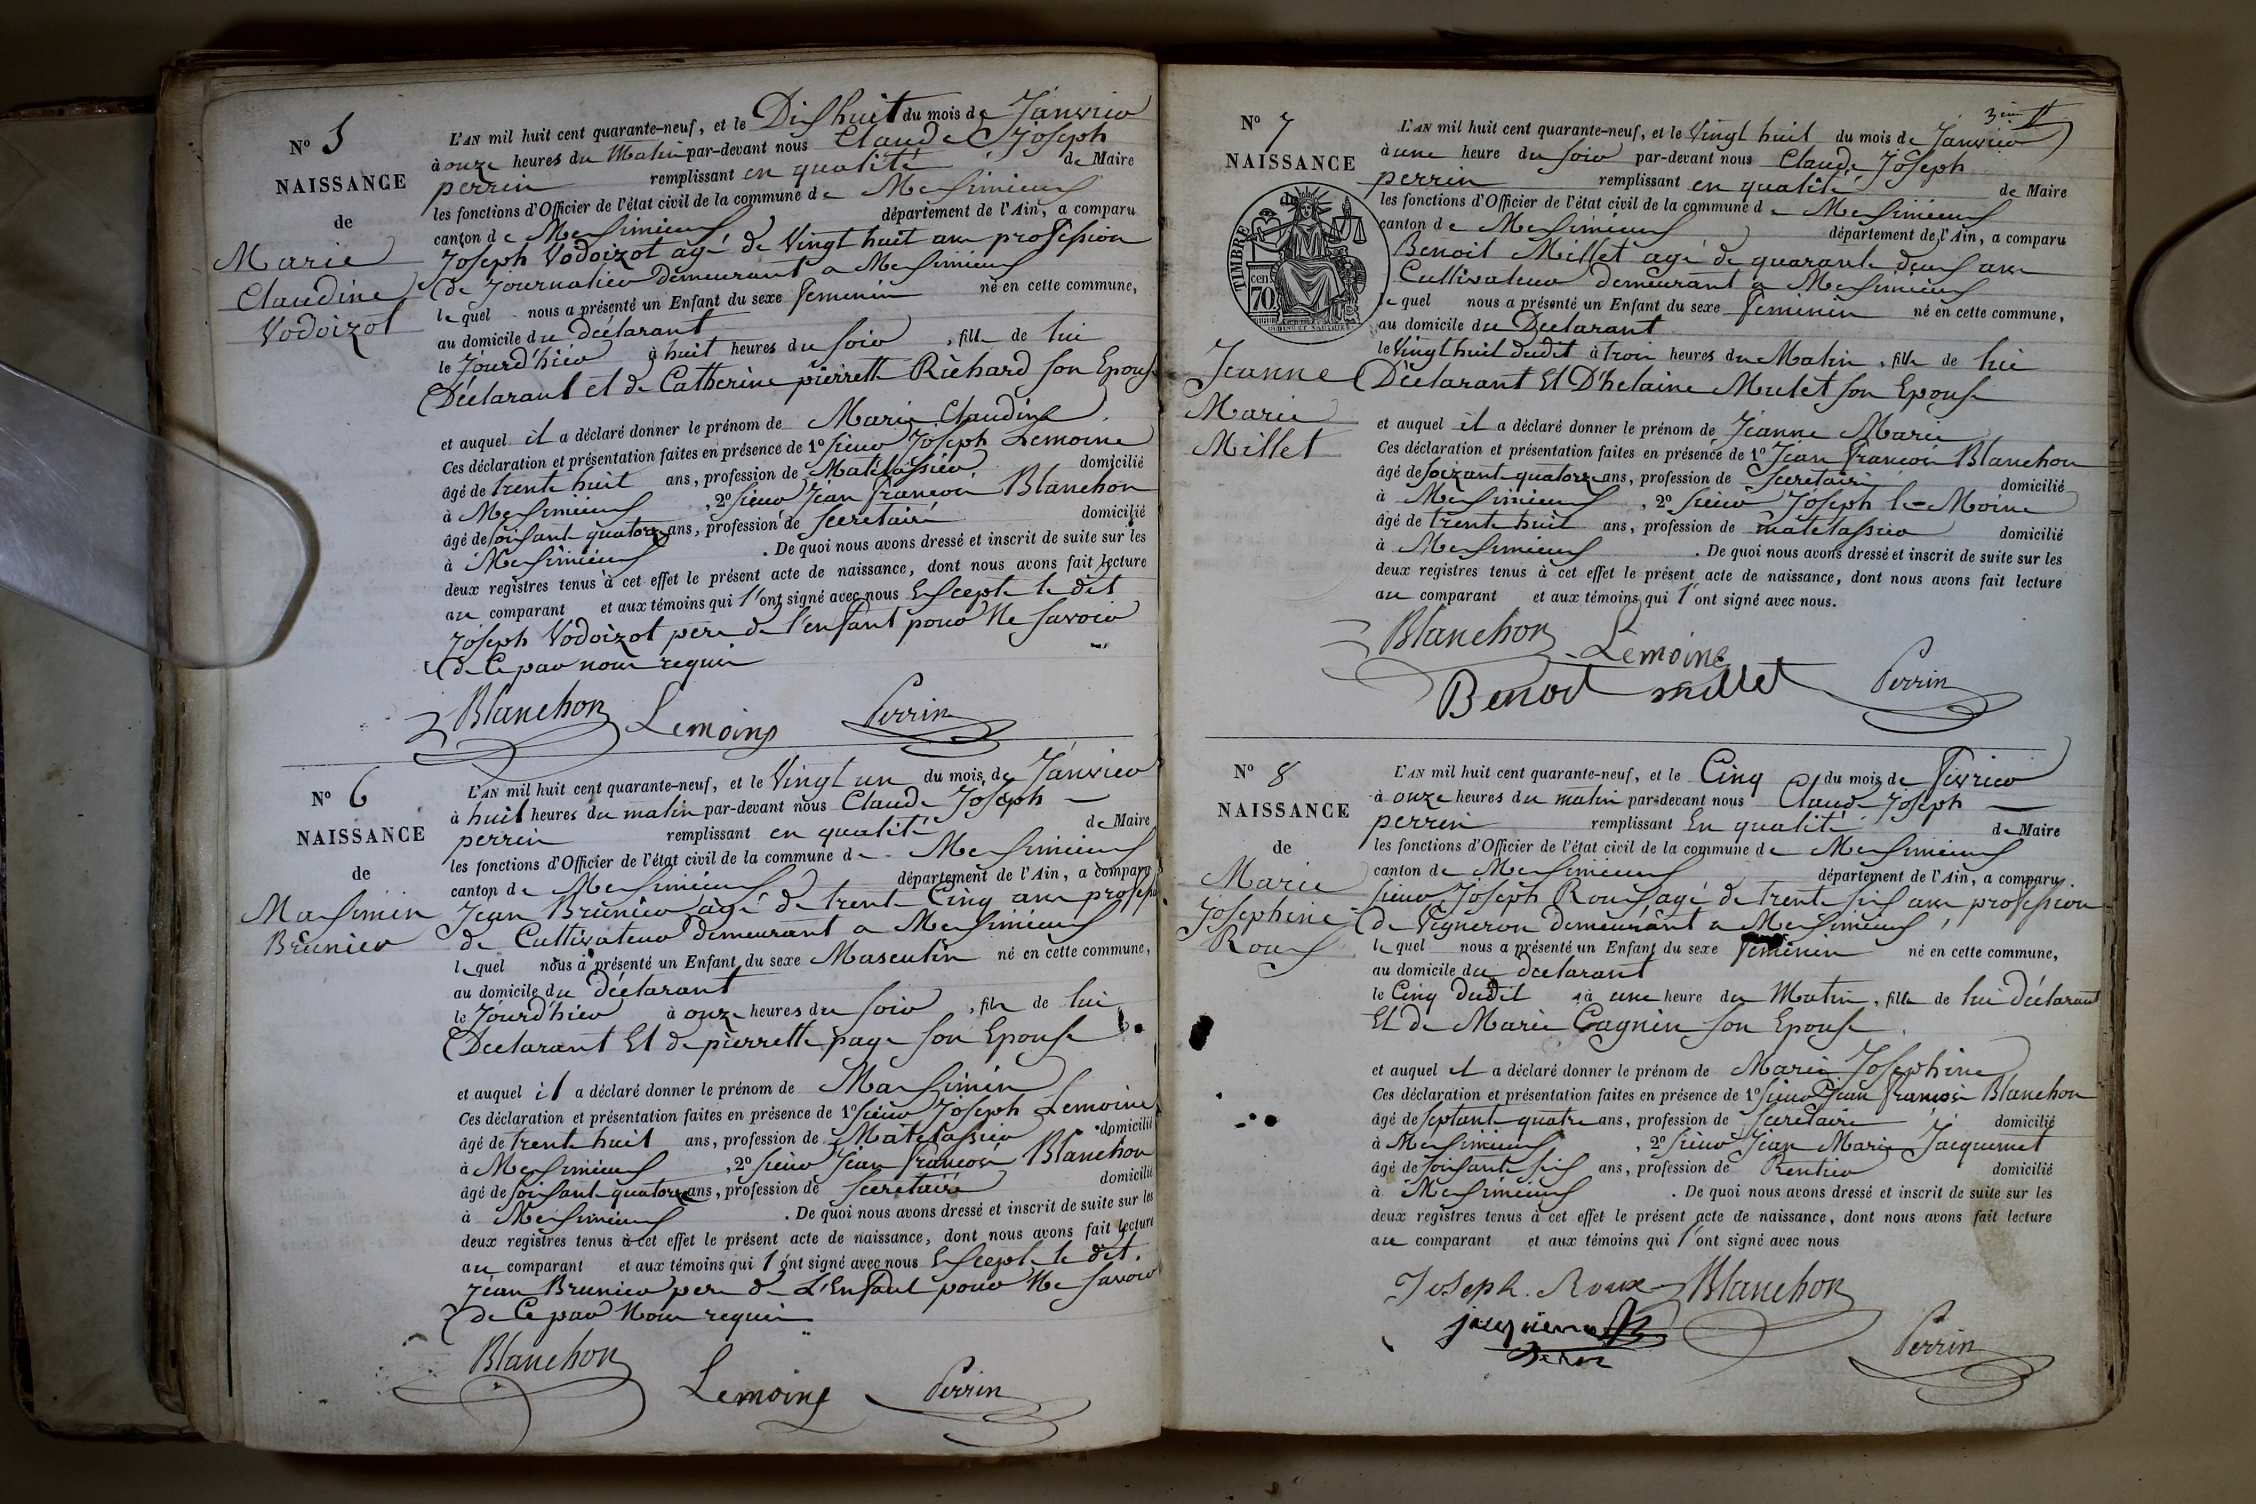 N° 5
NAISSANCE
de
Marie
Claudine
Vodoizot
L'AN mil huit cent quarante-neuf, et le Dishuit du mois de Janvier
à onze heures du Matin par-devant nous Claude Joseph
perrin remplissant en qualité de Maire
les fonctions d'Officier de l'état civil de la commune de Mesimieus
canton de Mesimieus département de l'Ain, a comparu
Joseph Vodoizot agé de Vingt huit ans profession
de Journalier Demeurant a Mesimieus
lequel nous a présenté un Enfant du sexe feminin né en cette commune,
au domicile du déclarant
le Jourd'hier à huit heures du soir, fille de lui
Déclarant et de Catherine pierrette Richard son Epouse
et auquel il a déclaré donner le prénom de Marie Claudine
Ces déclaration et présentation faites en présence de 1° sieur Joseph Lemoine
âgé de trente huit ans, profession de Matelassier domicilié
à Mesimieus, 2° sieur Jean francois Blanchon
âgé de soisante quatorze ans, profession de secretaire domicilié
à Mesimieus. De quoi nous avons dressé et inscrit de suite sur les
deux registres tenus à cet effet le présent acte de naissance, dont nous avons fait lecture
au comparant et aux témoins qui l'ont signé avec nous Escepte le dit
Joseph Vodoizot pere de l'enfant pour Ne savoir
de Ce par nous requis
Blanchon Lemoine Perrin
N° 6
NAISSANCE
de
Masimin
Brunier
L'AN mil huit cent quarante-neuf, et le Vingt un du mois de Janvier
à huit heures du matin par-devant nous Claude Joseph
perrin remplissant en qualité de Maire
les fonctions d'Officier de l'état civil de la commune de Mesimieus
canton de Mesimieus département de l'Ain, a comparu
Jean Brunier àgé de trente Cinq ans profession
de Cultivateur demeurant a Mesimieus
lequel nous a présenté un Enfant du sexe Masculin né en cette commune,
au domicile du déclarant
le Jourd'hier à onze heures du soir, fils de lui
Déclarant Et de pierrette page son Epouse
et auquel il a déclaré donner le prénom de Masimin
Ces déclaration et présentation faites en présence de 1° sieur Joseph Lemoine
âgé de trente huit ans, profession de Matelassier domicilié
à Mesimieus, 2° sieur Jean francois Blanchon
âgé de soisante quatorze ans, profession de secretaire domicilié
à Mesimieus. De quoi nous avons dressé et inscrit de suite sur les
deux registres tenus à cet effet le présent acte de naissance, dont nous avons fait lecture
au comparant et aux témoins qui l'ont signé avec nous Escepte le dit.
Jean Brunier pere de L'Enfant pour Ne savoir
de Ce par Nous requis
Blanchon Lemoine Perrin
N° 7
NAISSANCE
TIMBRE
cen
70
Jeanne
Marie
Millet
L'AN mil huit cent quarante-neuf, et le Vingt huit du mois de Janvier
à une heure du soir par-devant nous Claude Joseph
perrin remplissant en qualité de Maire
les fonctions d'Officier de l'état civil de la commune de Mesimieus
canton de Mesimieus département de l'Ain, a comparu
Benoit Millet agé de quarante deus ans
Cultivateur demeurant a Mesimieus
lequel nous a présenté un Enfant du sexe feminin né en cette commune,
au domicile du Declarant
le Vingt huit dudit à trois heures du Matin, fille de lui
Déclarant Et D'helaine Mulet son Epouse
et auquel il a déclaré donner le prénom de Jeanne Marie
Ces déclaration et présentation faites en présence de 1° Jean francois Blanchon
âgé de soizant quatorze ans, profession de secretaire domicilié
à Mesimieus, 2° sieur Joseph le=Moine
âgé de trente huit ans, profession de matelassier domicilié
à Mesimieus. De quoi nous avons dressé et inscrit de suite sur les
deux registres tenus à cet effet le présent acte de naissance, dont nous avons fait lecture
au comparant et aux témoins qui l'ont signé avec nous.
Blanchon Lemoine
Benoit millet Perrin
N° 8
NAISSANCE
de
Marie
Josephine
Rous
L'AN mil huit cent quarante-neuf, et le Cinq du mois de fevrier
à onze heures du matin par-devant nous Claude Joseph
perrin remplissant En qualité de Maire
les fonctions d'Officier de l'état civil de la commune de Mesimieus
canton de Mesimieus département de l'Ain, a comparu
sieur Joseph Rous agé de trente sis ans profession
de Vigneron demeurant a Mesimieus
lequel nous a présenté un Enfant du sexe feminin né en cette commune,
au domicile du declarant
le Cinq dudit à une heure du Matin, fille de lui déclarant
Et de Marie Gagnin son Epouse
et auquel il a déclaré donner le prénom de Marie Josephine
Ces déclaration et présentation faites en présence de 1° sieur Jean francois Blanchon
âgé de septant quatre ans, profession de secretaire domicilié
à Mesimieus, 2° sieur Jean Marie Jacquemet
âgé de soisante sis ans, profession de Rentier domicilié
à Mesimieus. De quoi nous avons dressé et inscrit de suite sur les
deux registres tenus à cet effet le présent acte de naissance, dont nous avons fait lecture
au comparant et aux témoins qui l'ont signé avec nous
Joseph. Roux Blanchon
Perrin